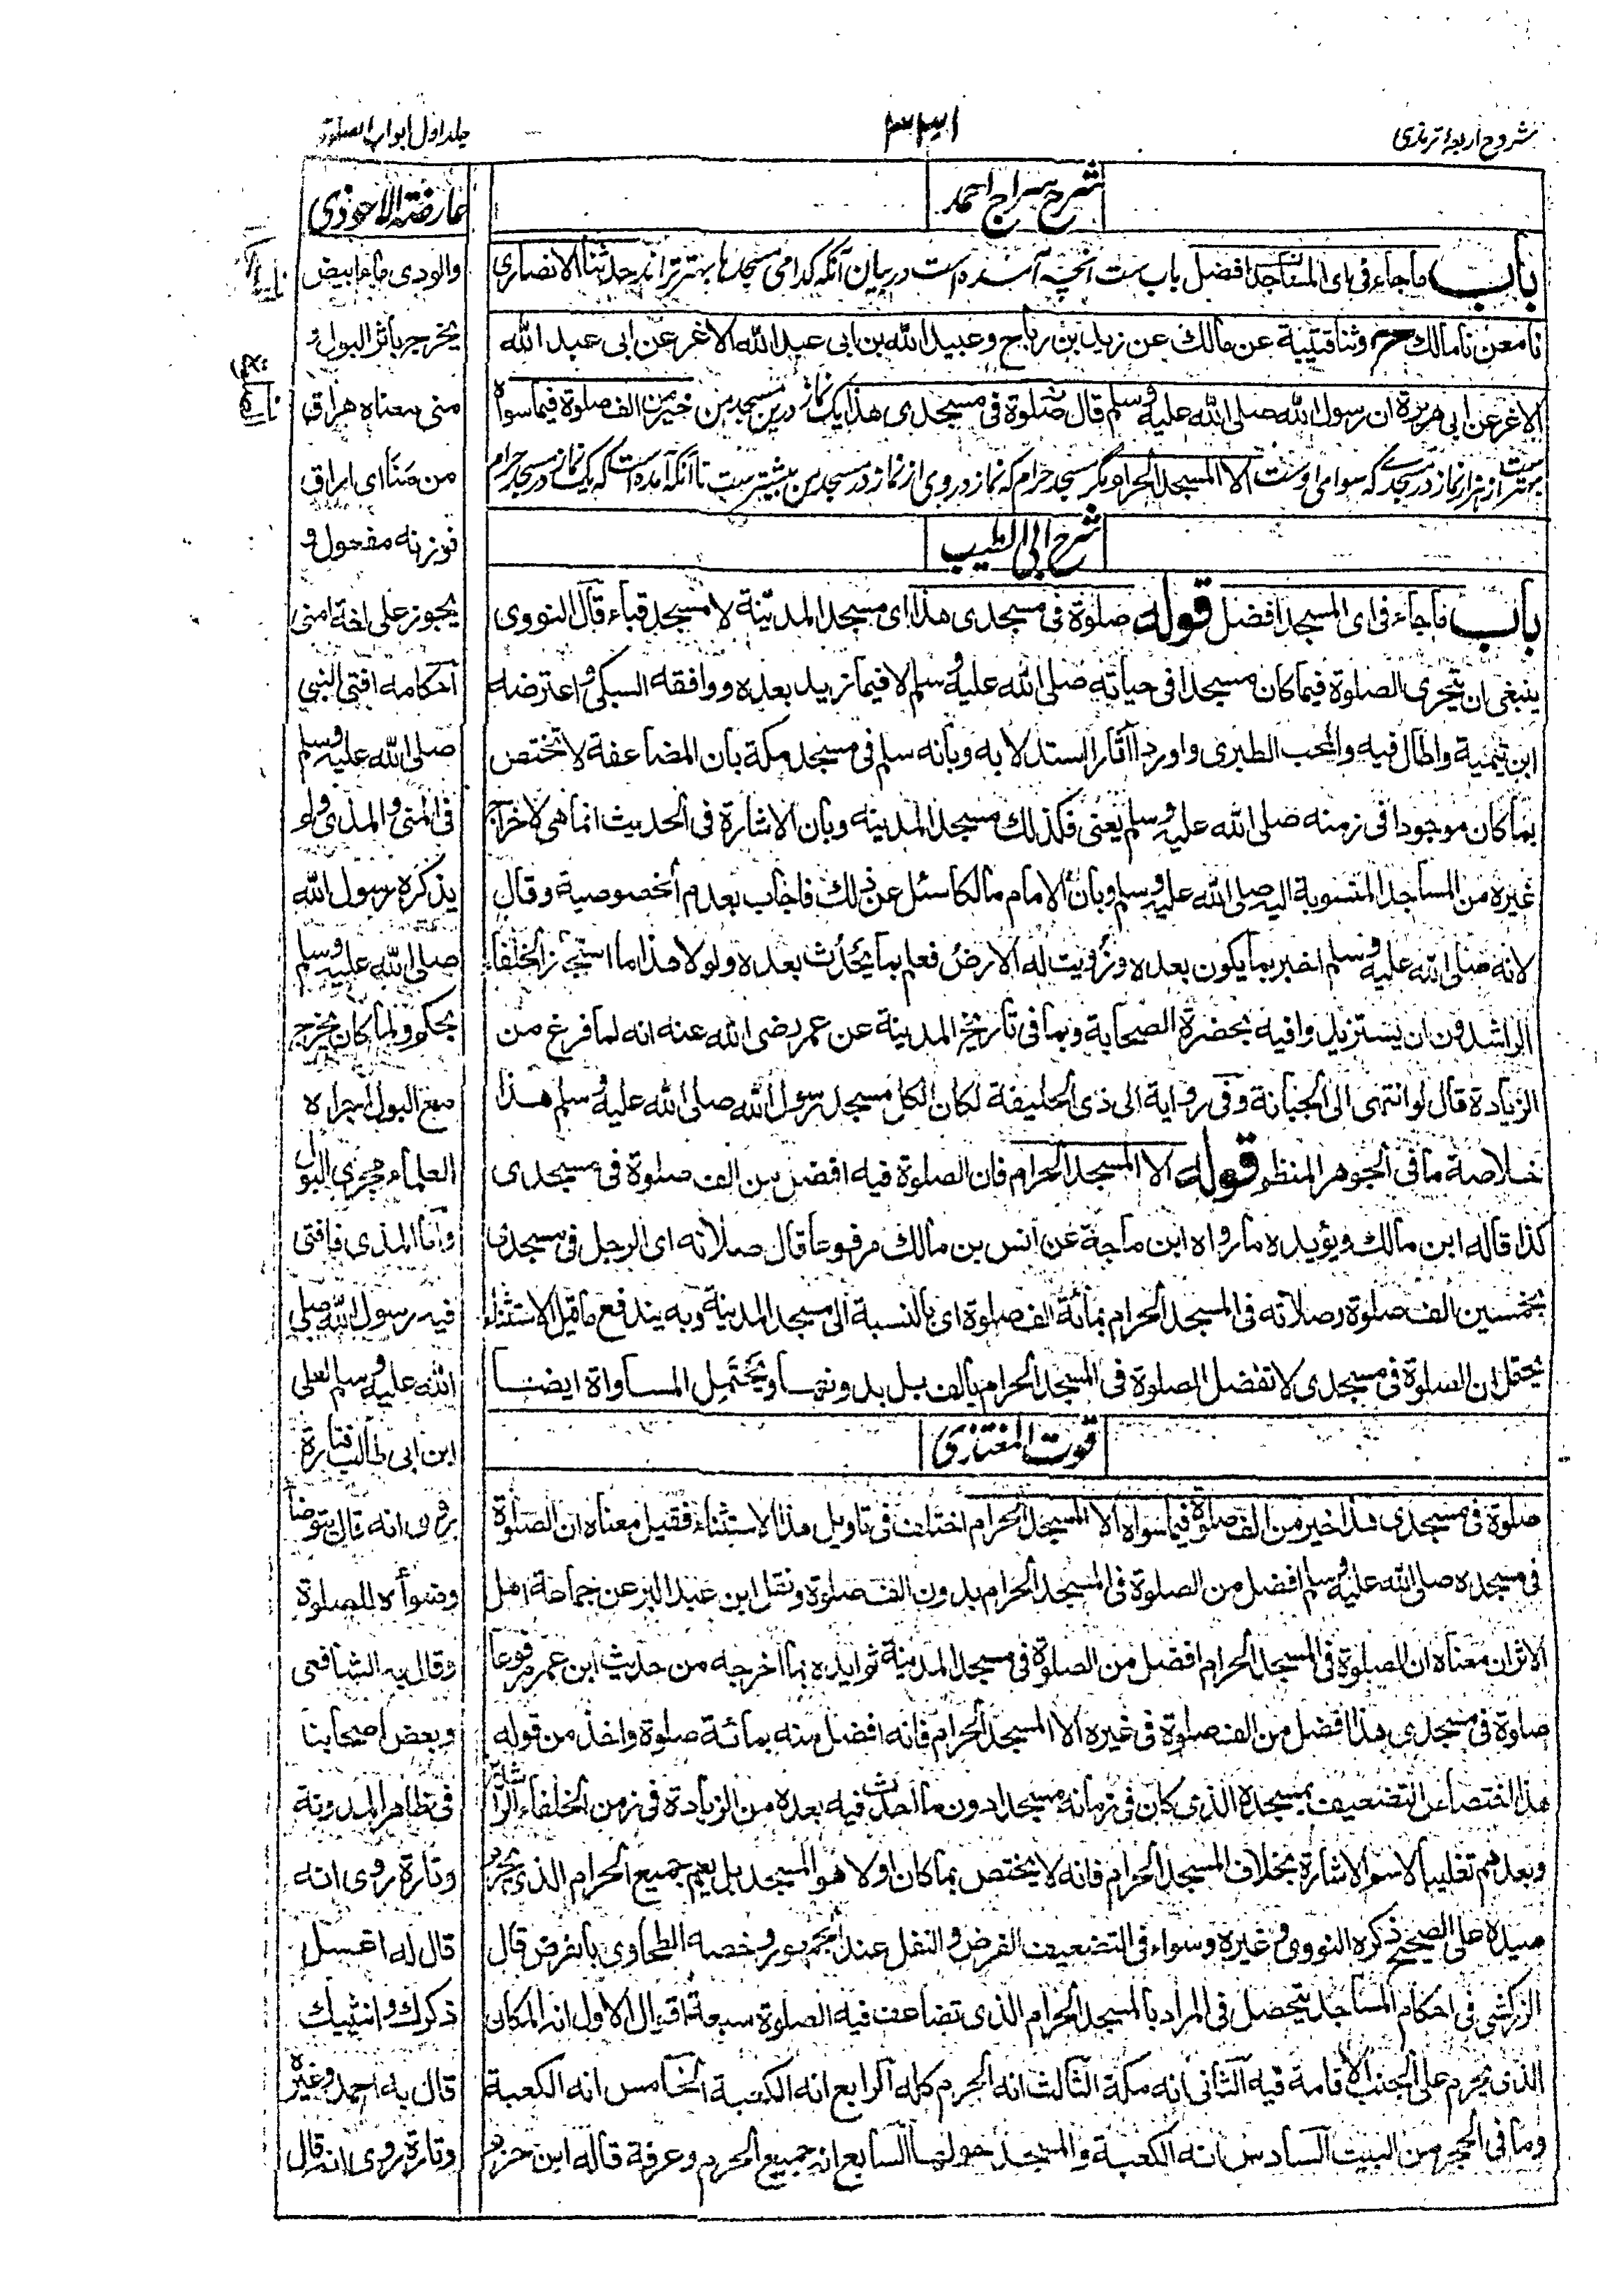 شروح اربعۀ ترمذی
۳۳۱
جلد اول ابواب الصلوة
شرح سراج احمد
باب ماجاء فی ای المساجد افضل باب ست آنچه آمده است در بیان آنکه کدامی مسجدها بهتر تر اند حدثنا الانصاری
نا معن نا مالک ح وثنا قتیبة عن مالك عن زید بن رباح وعبید الله بن ابی عبد الله الاغر عن ابی عبد الله
الاغر عن ابی هریرة ان رسول الله صلی الله علیه وسلم قال صلوة فی مسجدی هذا یک نماز درین مسجد من خیر من الف صلوة فیما سواه
بهتر ست از هزار نماز در مسجدے که سوای اوست الا المسجد الحرام مگر مسجد حرام که نماز در وی از نماز در مسجد من بیشتر ست تا آنکه آمده است که یک نماز در مسجد حرام
شرح ابی الطیب
باب ماجاء فی ای المسجد افضل قوله صلوة فی مسجدی هذا ای مسجد المدینة لا مسجد قباء قال النووی
ینبغی ان یتحری الصلوة فیما کان مسجدا فی حیاته صلی الله علیه وسلم لا فیما زید بعده ووافقه السبکی واعترضه
ابن تیمیة واطال فیه والمحب الطبری واوردا آثارا استدلا به وبأنه سلم فی مسجد مکة بأن المضاعفة لا تختص
بما کان موجودا فی زمنه صلی الله علیه وسلم یعنی فکذلك مسجد المدینة وبأن الاشارة فی الحدیث انما هی لاخراج
غیره من المساجد المنسوبة الیه صلی الله علیه وسلم وبأن الامام مالکا سئل عن ذلك فاجاب بعدم الخصوصیة وقال
لانه صلی الله علیه وسلم اخبر بما یکون بعده وزویت له الارض فعلم بما یحدث بعده ولولا هذا ما استجاز الخلفاء
الراشدون ان یستزیدوا فیه بحضرة الصحابة وبما فی تاریخ المدینة عن عمر رضی الله عنه انه لما فرغ من
الزیادة قال لو انتهی الی الجبانة وفی روایة الی ذی الحلیفة لکان الکل مسجد رسول الله صلی الله علیه وسلم هذا
خلاصة ما فی الجوهر المنظم قوله الا المسجد الحرام فان الصلوة فیه افضل من الف صلوة فی مسجدی
کذا قاله ابن مالك ویؤیده ما رواه ابن ماجة عن انس بن مالك مرفوعا قال صلاته ای الرجل فی مسجدی
بخمسین الف صلوة وصلاته فی المسجد الحرام بمائة الف صلوة ای بالنسبة الی مسجد المدینة وبه یندفع ما قیل الاستثناء
یحتمل ان الصلوة فی مسجدی لا تفضل الصلوة فی المسجد الحرام بألف بل بدونها ویحتمل المساواة ایضا
قوت المغتذی
صلوة فی مسجدی هذا خیر من الف صلوة فیما سواه الا المسجد الحرام اختلف فی تاویل هذا الاستثناء فقیل معناه ان الصلوة
فی مسجده صلی الله علیه وسلم افضل من الصلوة فی المسجد الحرام بدون الف صلوة ونقل ابن عبد البر عن جماعة اهل
الاثر ان معناه ان الصلوة فی المسجد الحرام افضل من الصلوة فی مسجد المدینة ثم ایده بما اخرجه من حدیث ابن عمر مرفوعا
صلوة فی مسجدی هذا افضل من الف صلوة فی غیره الا المسجد الحرام فانه افضل منه بمائة صلوة واخذ من قوله
هذا اختصاص التضعیف بمسجده الذی کان فی زمانه مسجدا دون ما احدث فیه بعده من الزیادة فی زمن الخلفاء الراشدین
وبعدهم تغلیبا لاسم الاشارة بخلاف المسجد الحرام فانه لا یختص بما کان اولا هو المسجد بل یعم جمیع الحرام الذی یحرم
صیده علی الصحیح ذکره النووی وغیره وسواء فی التضعیف الفرض والنفل عند الجمهور وخصه الطحاوی بالفرض قال
الزرکشی فی احکام المساجد یتحصل فی المراد بالمسجد الحرام الذی تضاعف فیه الصلوة سبعة اقوال الاول انه المکان
الذی یحرم علی الجنب الاقامة فیه الثانی انه مکة الثالث انه الحرم کله الرابع انه الکعبة الخامس انه الکعبة
وما فی الحجر من البیت السادس انه الکعبة والمسجد حولها السابع انه جمیع الحرم وعرفة قاله ابن حزم
عارضة الاحوذی
والودی ماء ابیض
یخرج باثر البول و
منی معناه هراق
من منا ای اراق
فوزنه مفعول و
یجوز علی لغة امنی
احکامه افتی النبی
صلی الله علیه وسلم
فی المنی والمذی ولم
یذکره رسول الله
صلی الله علیه وسلم
بحکم ولما کان یخرج
مع البول اجراه
العلماء مجری البول
واما المذی فافتی
فیه رسول الله صلی
الله علیه وسلم لعلی
ابن ابی طالب فتارة
روی انه قال یتوضأ
وضوأه للصلوة
وقال به الشافعی
وبعض اصحابنا
فی ظاهر المدونة
وتارة روی انه
قال له اغسل
ذکرك وانثییك
قال به احمد وغیره
وتارة روی انه قال